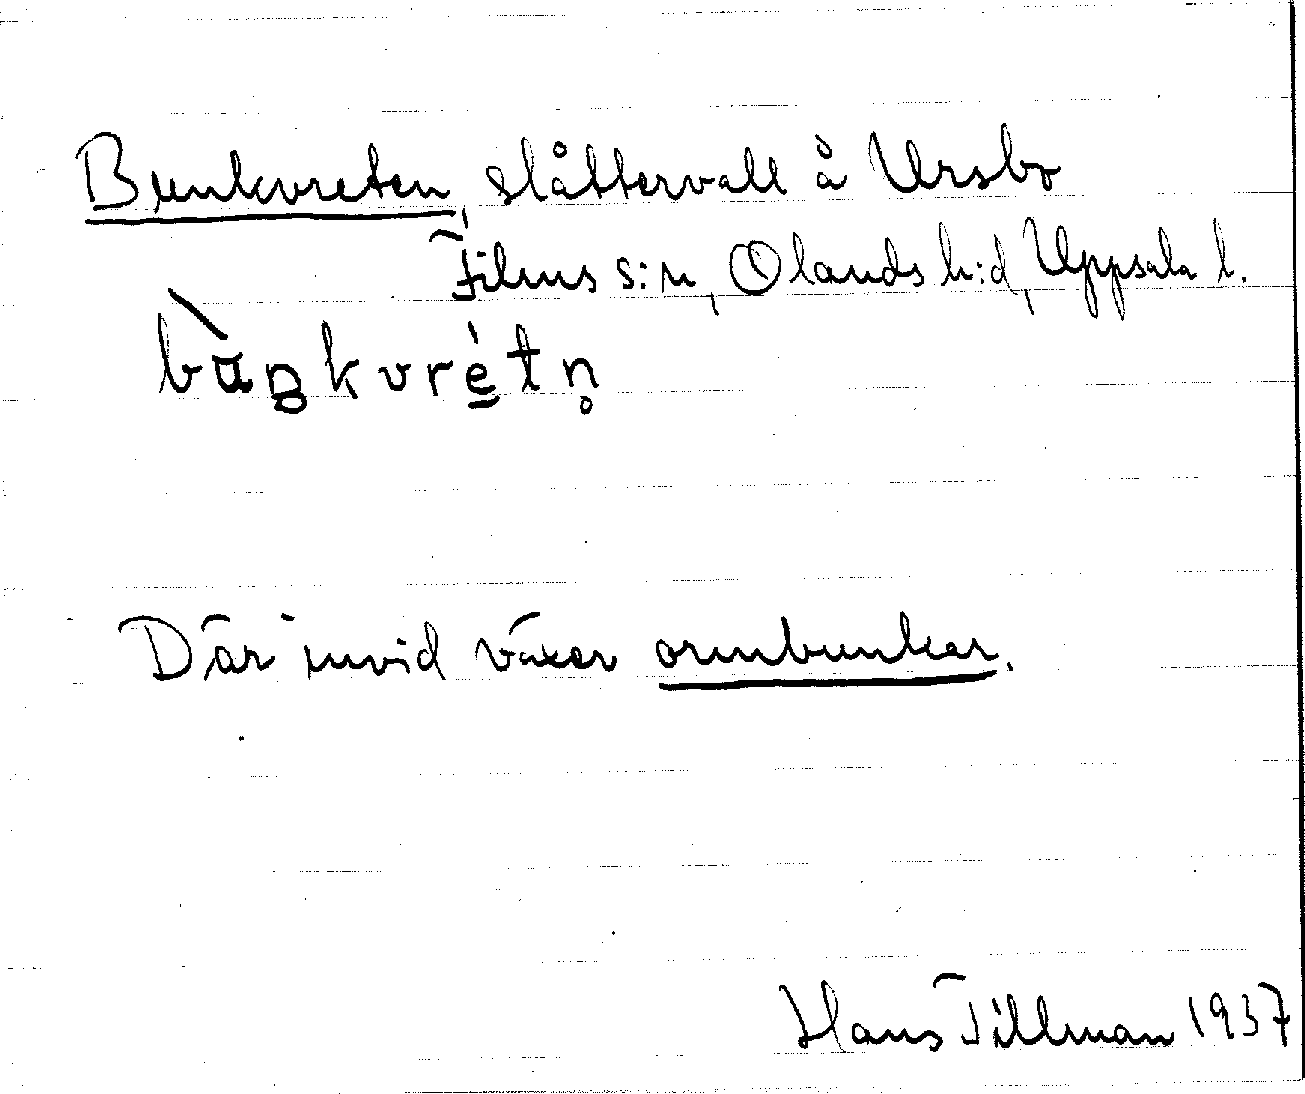 Bunkvreten, slåttervall å Ursbo
Films s:n, Olands h:d, Uppsala l.
bùŋkvrétn̥
Där invid växer ormbunkar.
Hans Tillman 1937